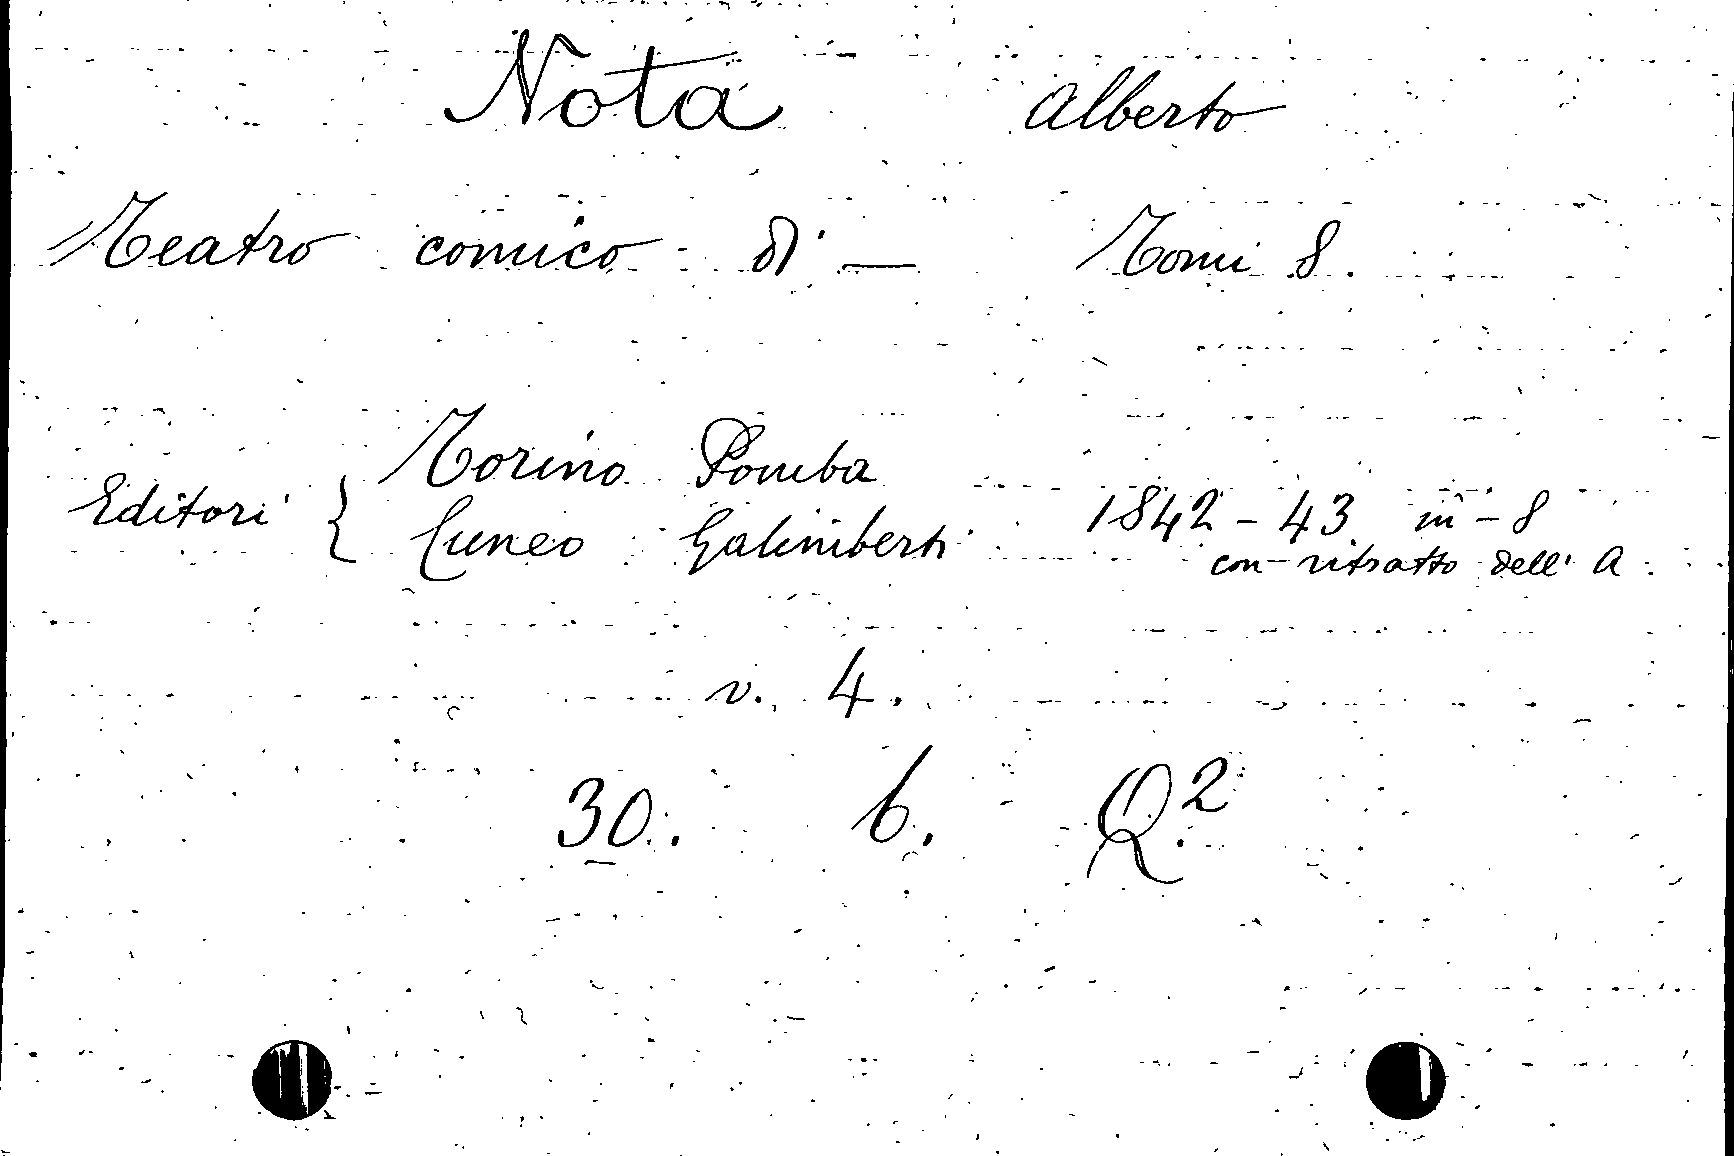 Nota Alberto
Teatro comico di — Tomi 8.
Editori { Torino Pomba
Cuneo Galimberti 1842-43 in-8
con ritratto dell' A.
v. 4.
30. b. Q.2